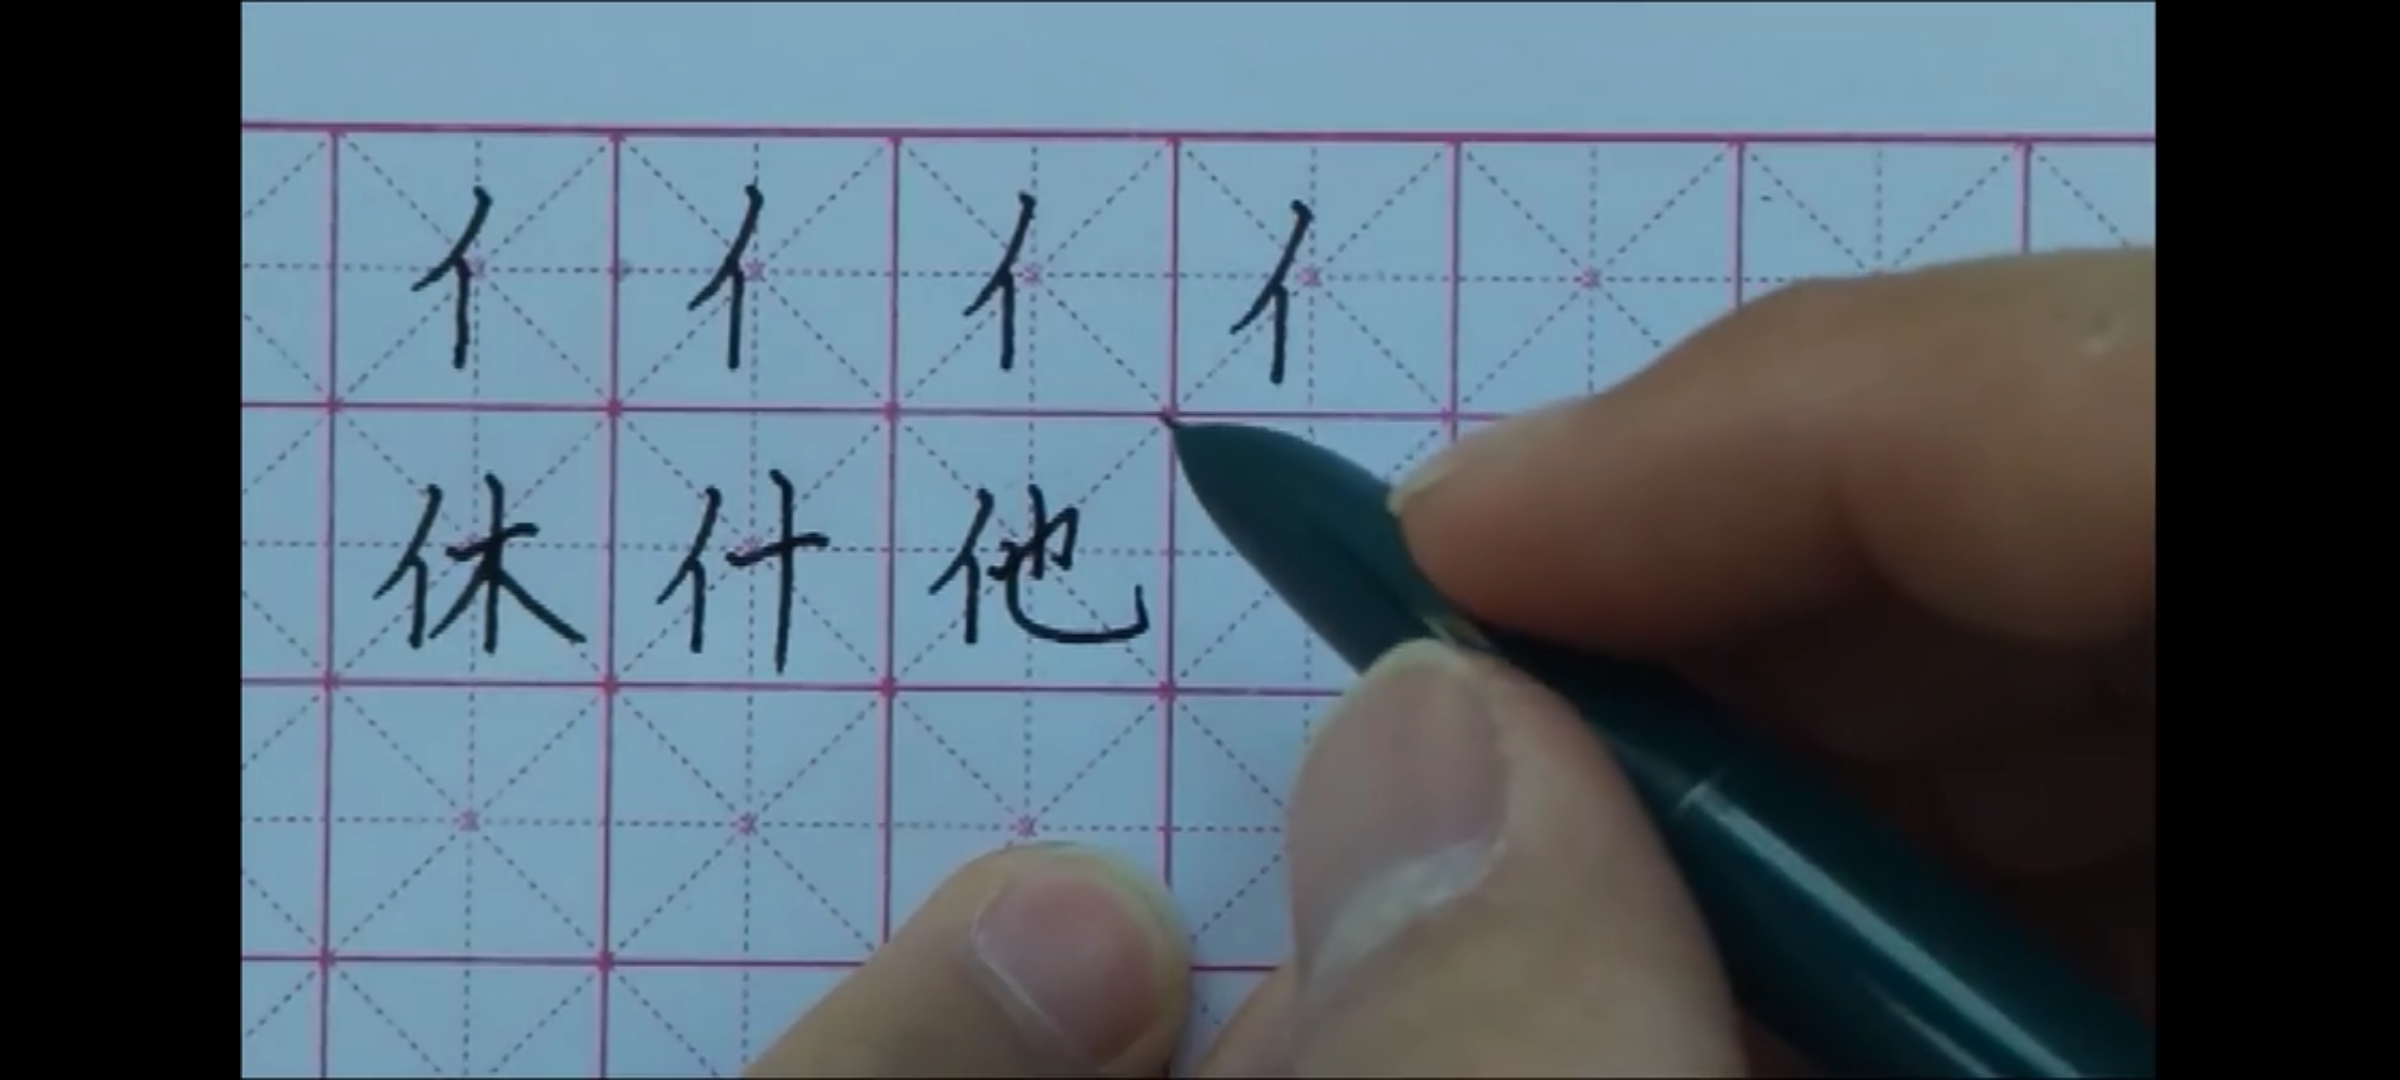 亻亻亻亻
休什他